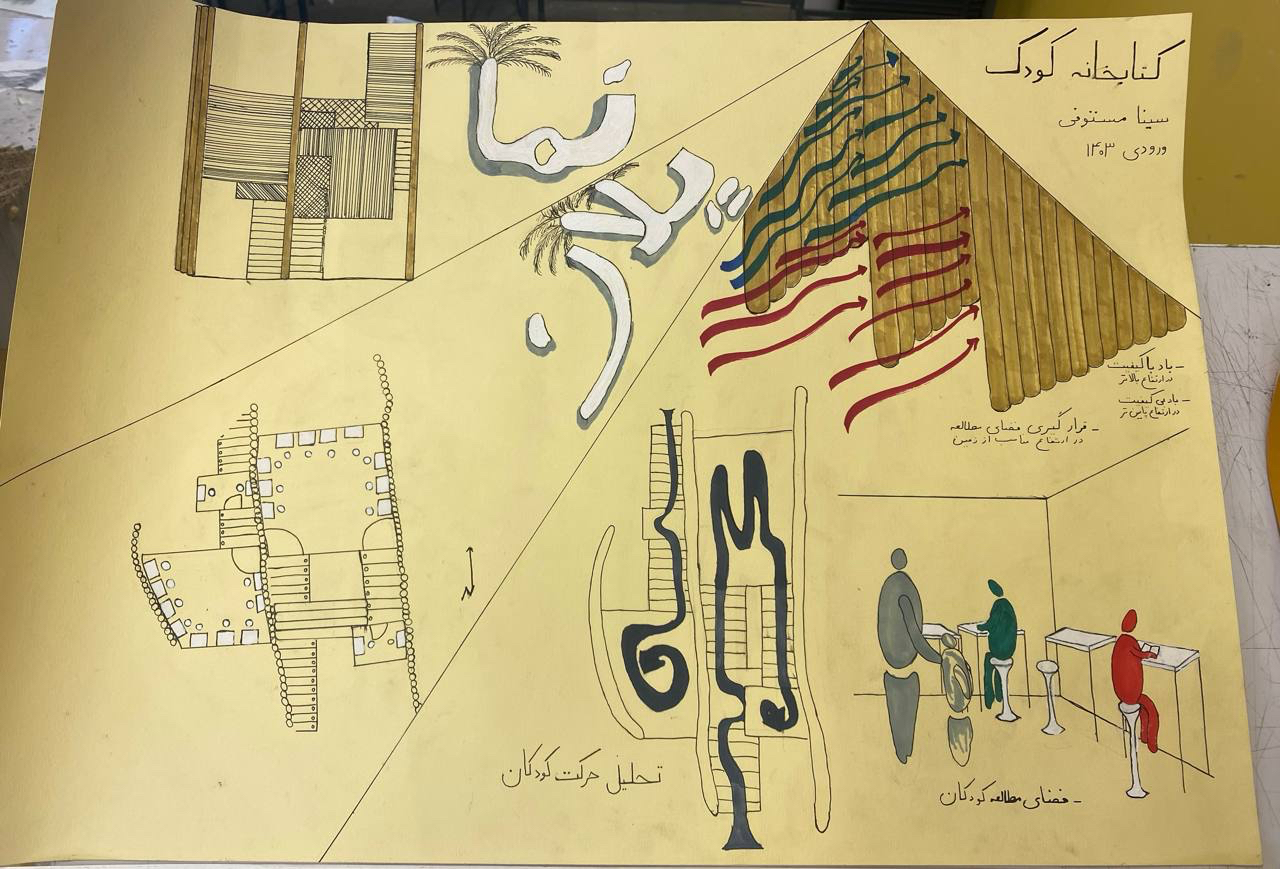 کتابخانه کودک
سینا مستوفی
ورودی ۱۴۰۳
نما
پلان
- باد با کیفیت
در ارتفاع بالاتر
- باد بی کیفیت
در ارتفاع پایین تر
- قرار گیری فضای مطالعه
در ارتفاع مناسب از زمین
تحلیل حرکت کودکان
- فضای مطالعه کودکان
N